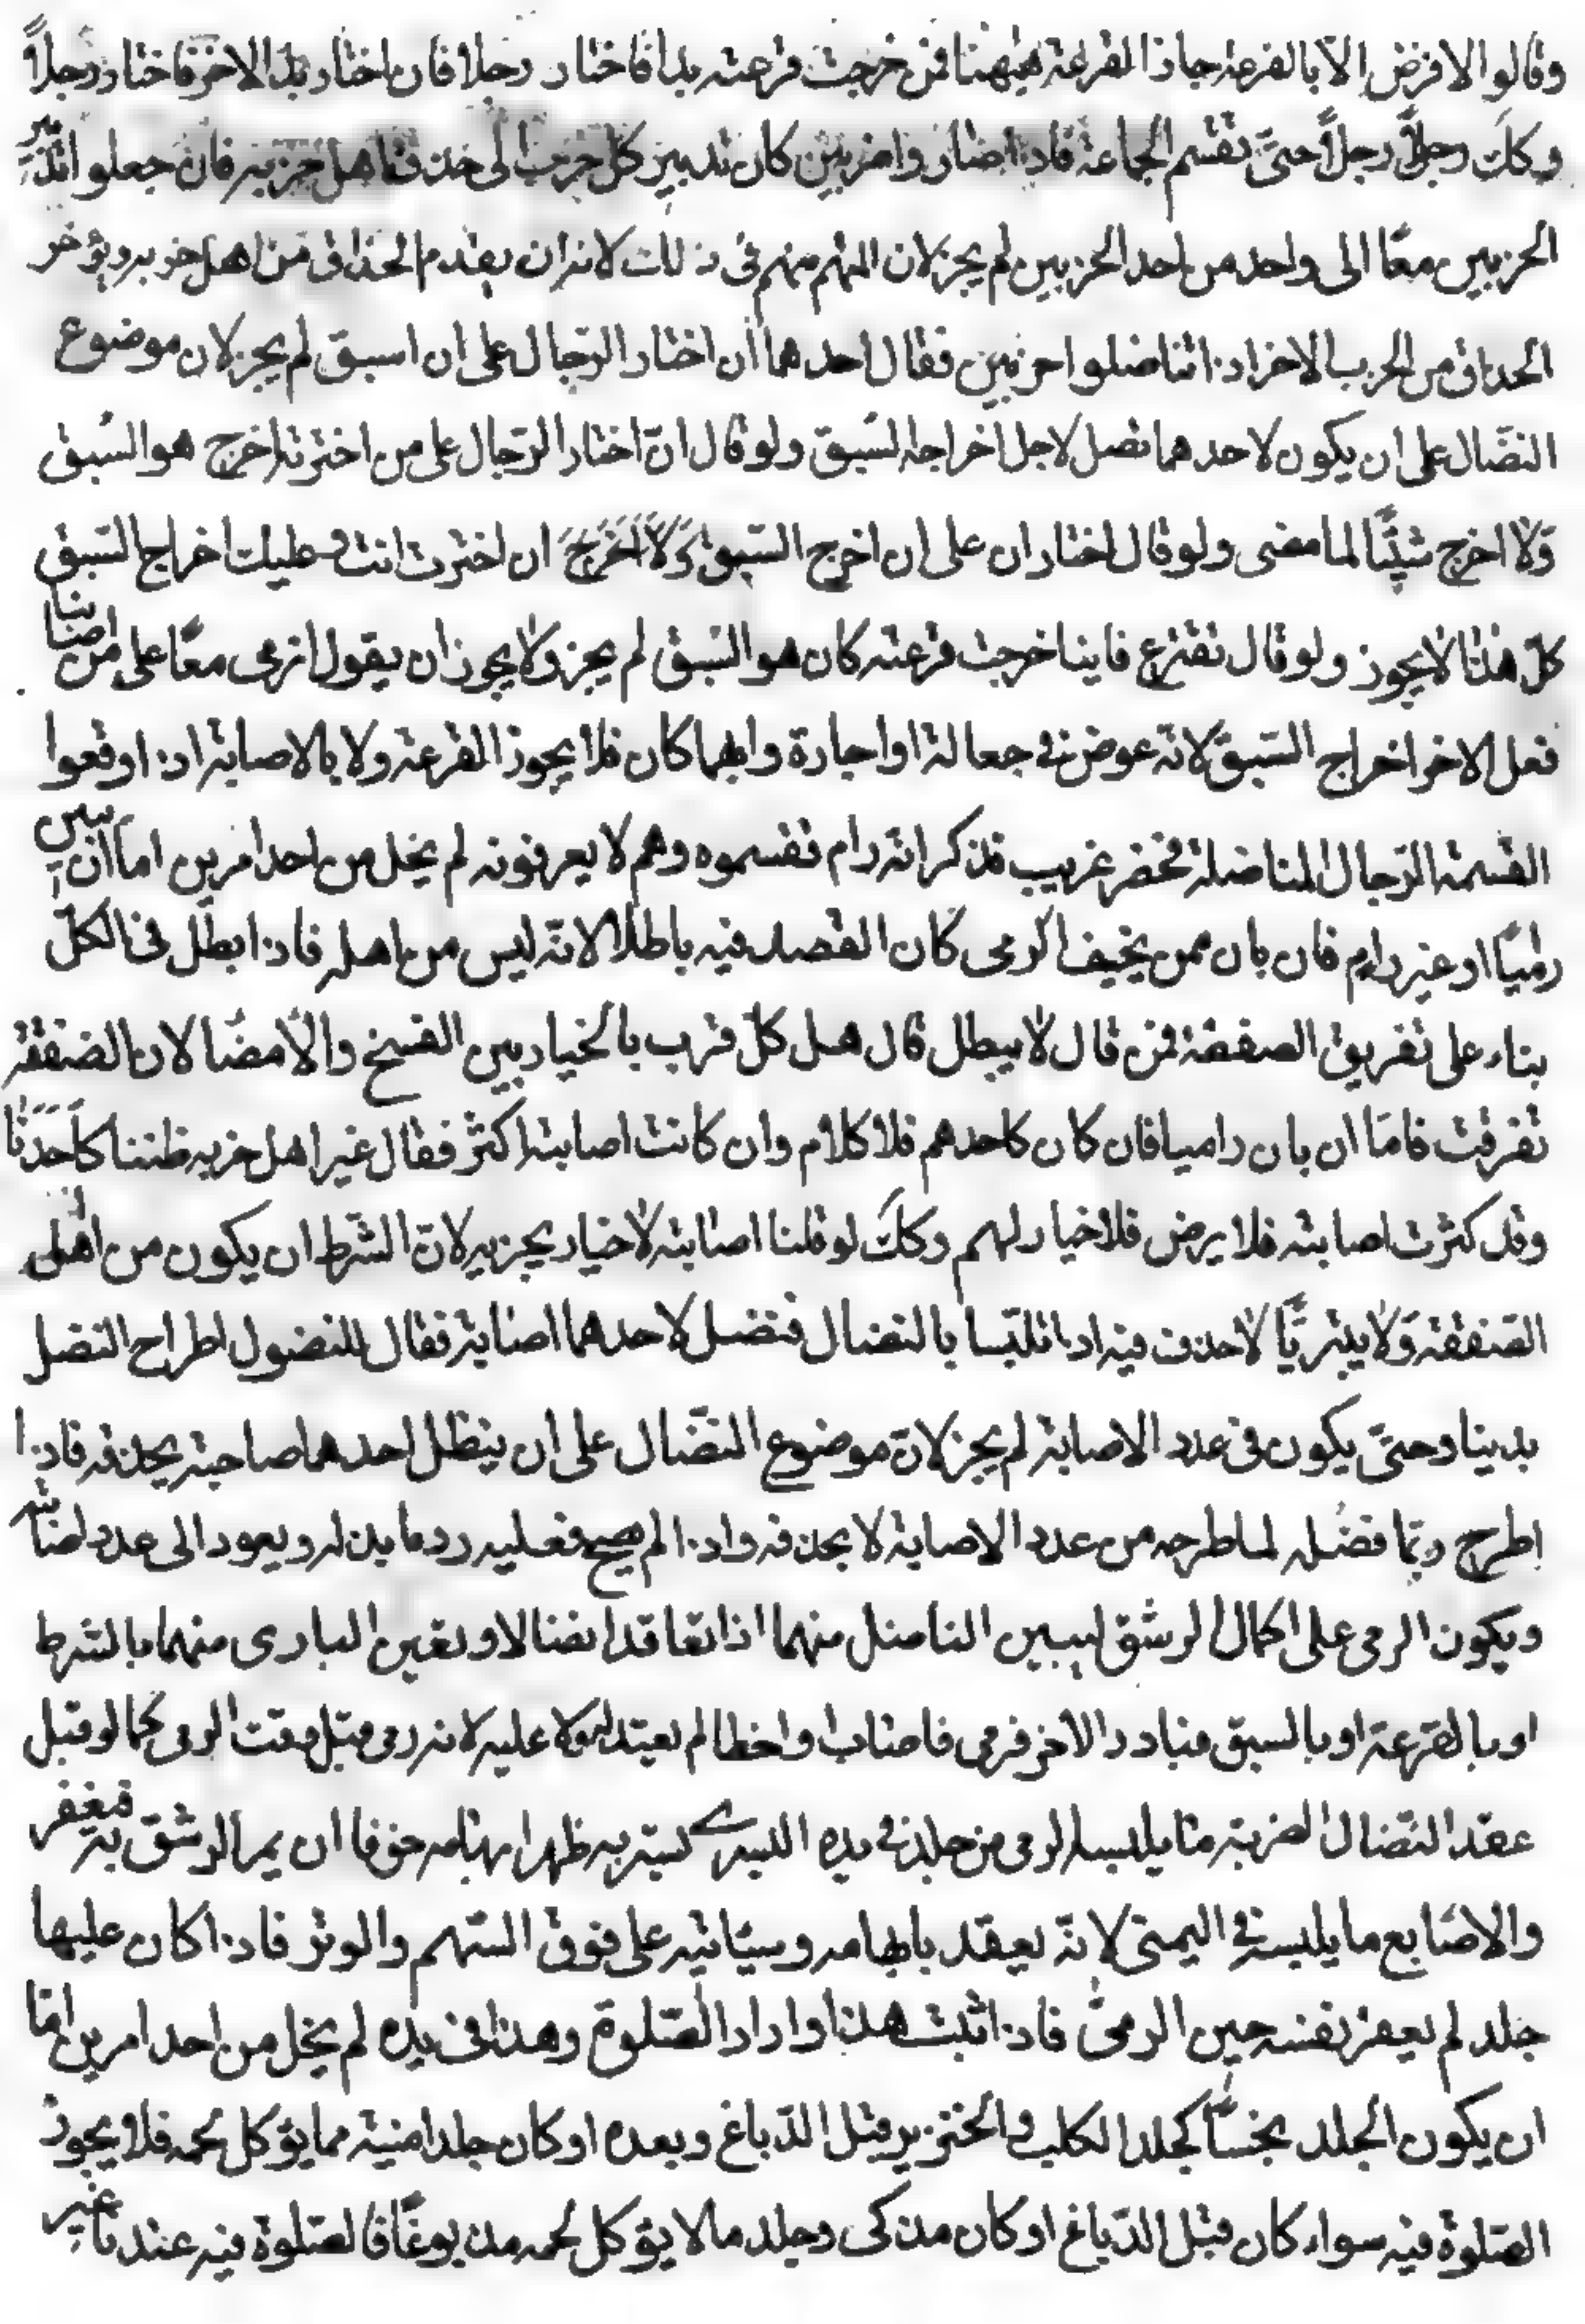 وقالوا لا فرض الا بالقرعة جاز القرعة هيهنا فمن خرجت قرعته بدا فاختار رجلا فان اختار بدا الاخر فاختار رجلاً
وكك رجلاً رجلاً حتى تقسم الجماعة فاذا صاروا حزبين كان تدبير كل حزب الى حذف اهل حزبه فان جعلوا تدبير
الحزبين معًا الى واحد من احد الحزبين لم يجز لان المتهم منهم في ذلك لانه ان يقدم الحذاق من اهل حزبه ويؤخر
الحداق من الحزب الاخر اذا تناضلوا حزبين فقال احدهما ان اختار الرجال على ان اسبق لم يجز لان موضوع
النضال على ان يكون لاحدهما فضل لاجل اخراجه السبق ولو قال انّ اختار الرجال على من اخترته اخرج هو السبق
ولا اخرج شيئًا لما مضى ولو قال اختار ان على ان اخرج السبق ولا اخرج ان اخترت انت وعليك اخراج السبق
كلّ هذا لا يجوز ولو قال نقترع فاينا خرجت قرعته كان هو السبق لم يجز ولا يجوز ان يقول ارمى معًا على من اصابنا
فعل الاخر اخراج السبق لانه عوض في جعالة او اجارة وايهما كان فلا يجوز القرعة ولا بالاصابة اذا اوقعوا
القسمة الرجال المناضلة فحضر غريب فذكر انه رام فقسموه وهم لا يعرفونه لم يخل من احد امرين اما ان يبين
راميًا او غير رام فان بان ممن يخيف الرمى كان الفصد فيه باطلا لانه ليس من اهله فاذا ابطل في الكلّ
بناء على تفريق الصفقة فمن قال لا يبطل قال هل كلّ قرب بالخيار بين الفسخ والامضا لان الصفقة
تفرقت فامّا ان بان راميا فان كان كاحدهم فلا كلام وان كانت اصابته اكثر فقال غير اهل حزبه ظننا كاحدنا
وقد كثرت اصابته فلا يرض فلا خيار لهم وكك لو قلنا اصابته لا خيار بحزبه لانّ الشرط ان يكون من اهل
الصفقة ولا يشريّا لاحذف فيه اذا تلبّسا بالنضال ففضل لاحدهما اصابة فقال المفضول اطراح الفضل
بدينار حتى يكون في عدد الاصابة لم يجز لانّ موضوع النضّال على ان ينظل احدهما صاحبه بحذفه فاذا
اطرح ربّما فضله لما طرحه من عدد الاصابة لا بحذفه واذا لم يصح فعليه رد ما بذله ويعود الى عدد اصابته
ويكون الرمى على اكمال الرشق ليبين الناضل منهما اذا تعاقدا نضالا وتعين البادى منهما بالشرط
او بالقرعة او بالسبق فبادر الاخر فرمى فاصاب او اخطا لم يعتد له ولا عليه لانه رمى قبل وقت الرمى كما لو قبل
عقد النضال المضربة ما يلبسه الرمى من جلد في يده اليسرى يستر به ظهر ابهامه خوفا ان يمر الرشق به فيعقر
والاصابع ما يلبسه في اليمنى لانّه يعقد بابهامه وسبّابته على فوق السّهم والوتر فاذا كان عليها
جلد لم يعقر نفسه حين الرمى فاذا ثبت هذا وارادا الصّلوة وهذا في يده لم يخل من احد امرين امّا
ان يكون الجلد نجسًا كجلد الكلب والخنزير قبل الدّباغ وبعده او كان جلدا ميتة مما يؤكل لحمه فلا يجوز
الصّلوة فيه سواء كان قبل الدّباغ او كان مذكى وجلد ما لا يؤكل لحمه مدبوغًا فالصّلوة فيه عندنا غير